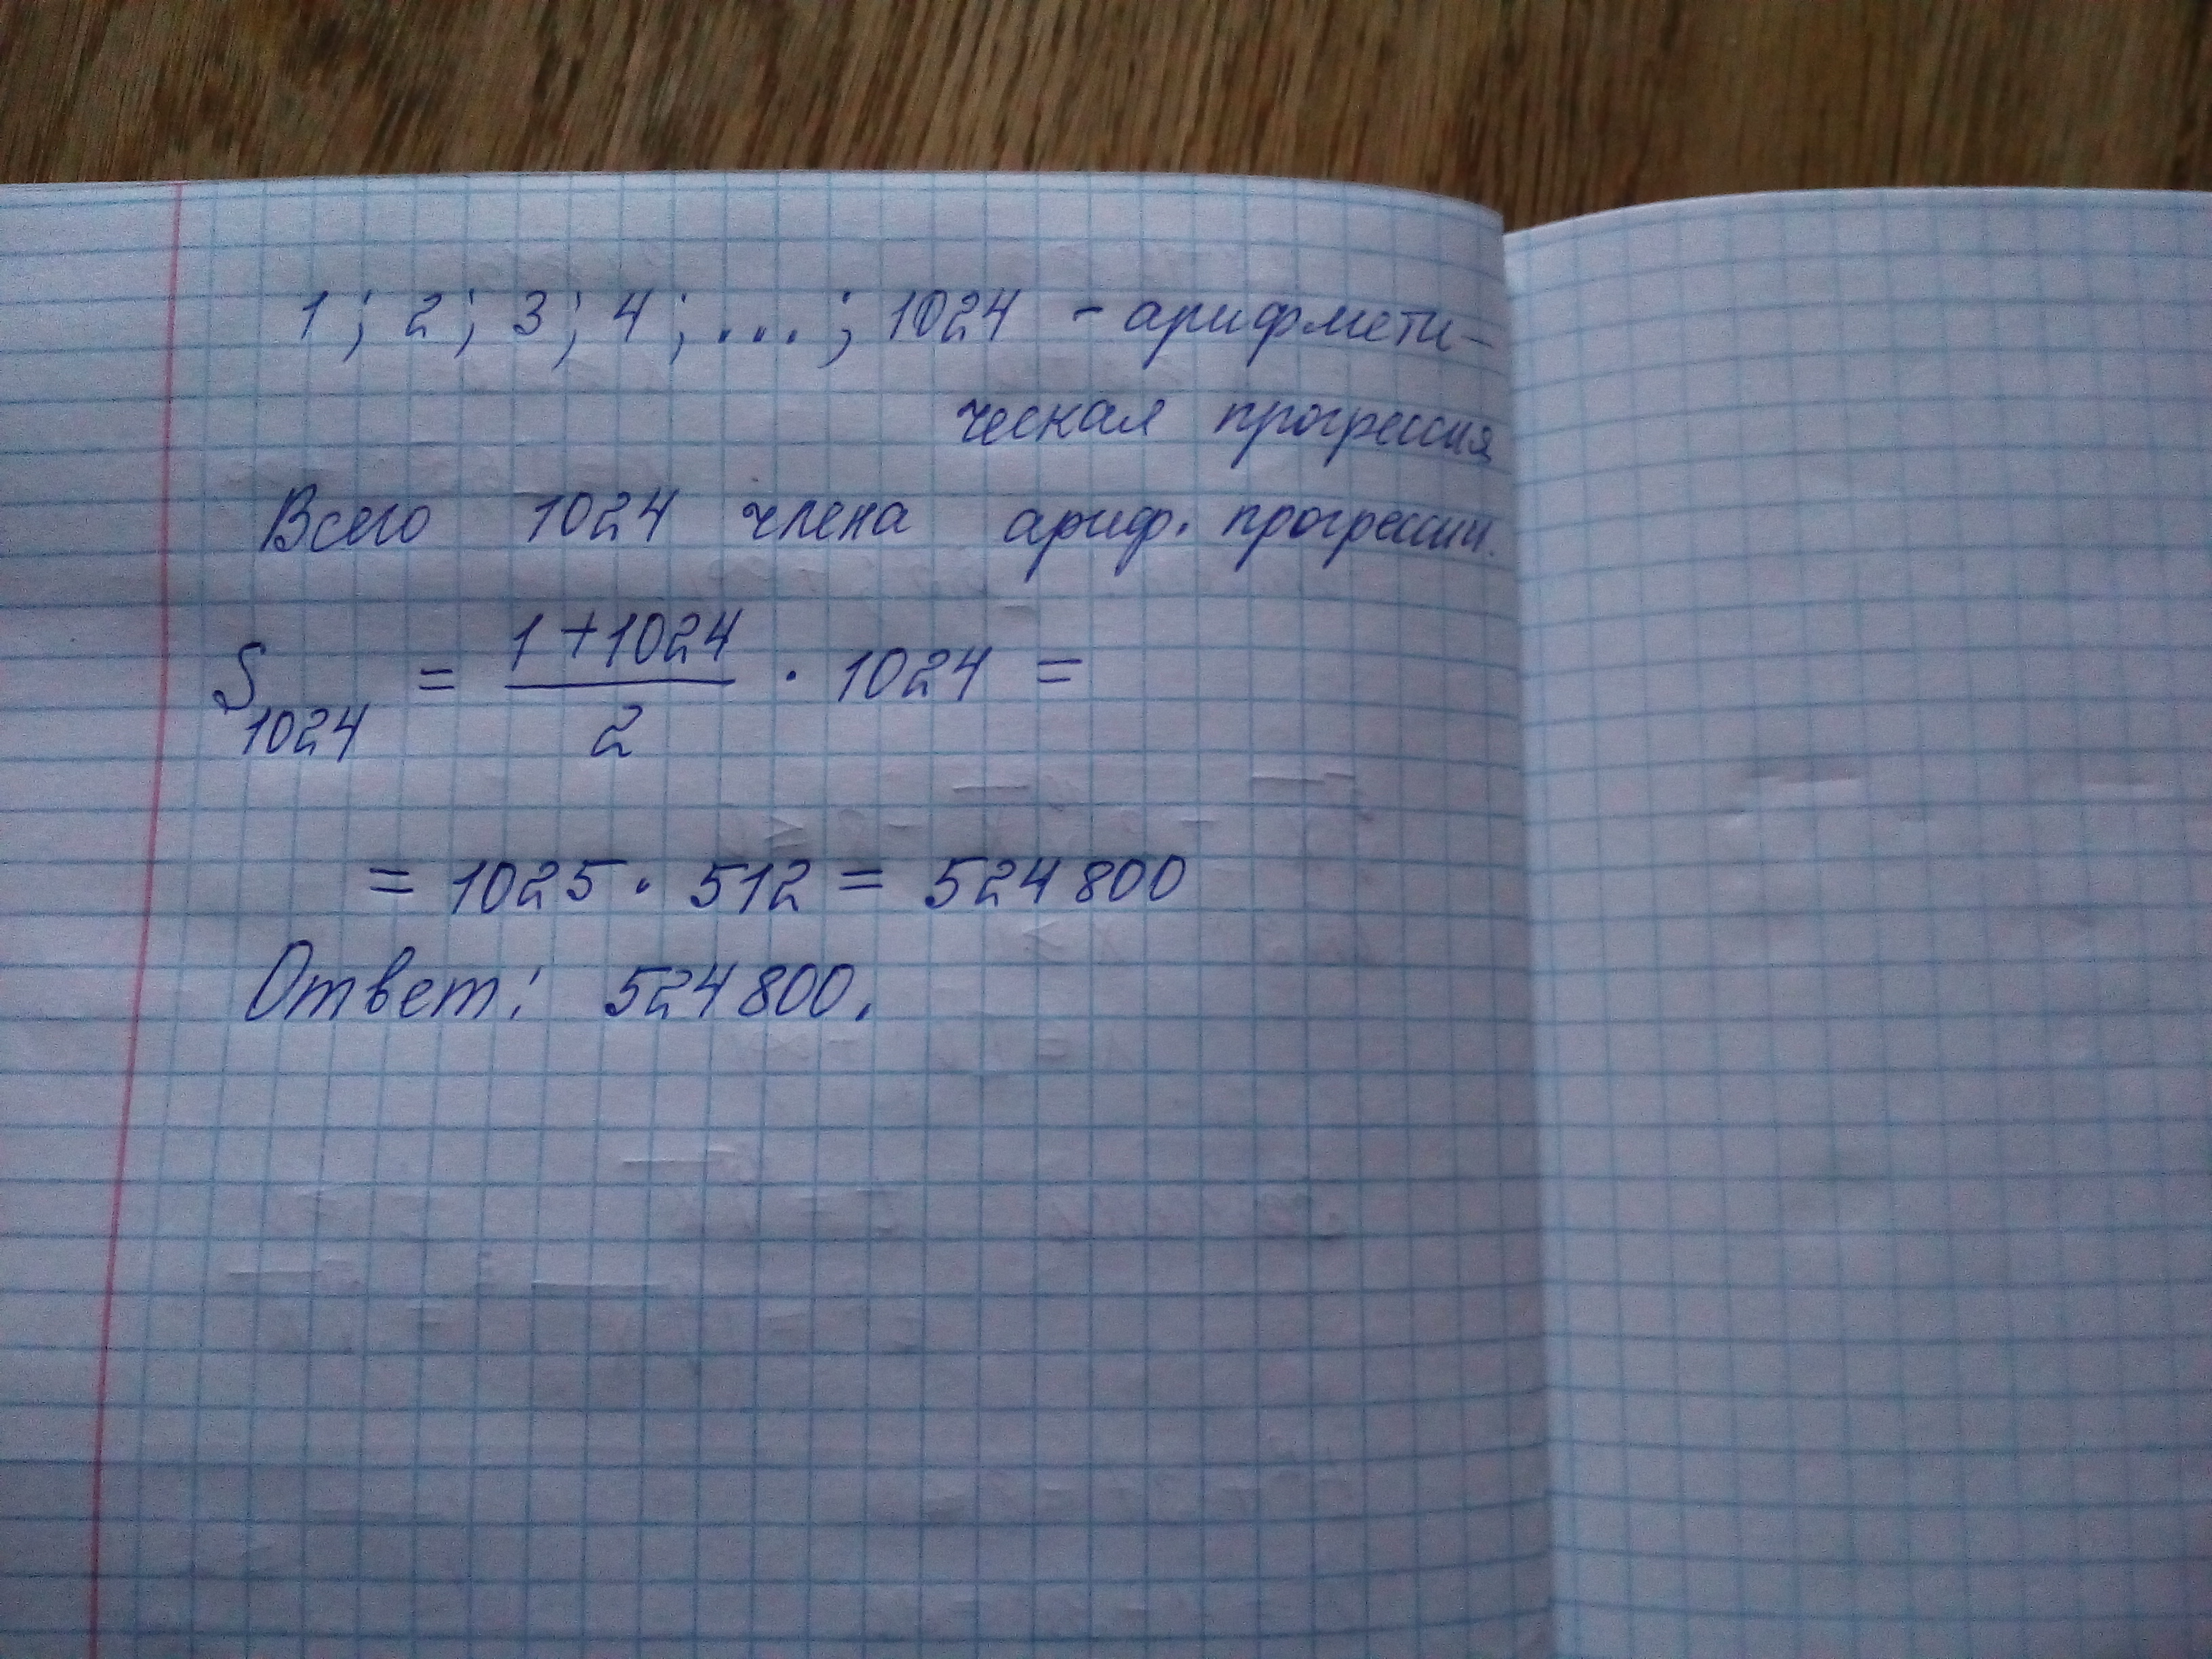 1; 2; 3; 4; ...; 1024 - арифмети-
ческая прогрессия
Всего 1024 члена ариф. прогрессии.
S₁₀₂₄ = (1+1024)/2 · 1024 =
= 1025 · 512 = 524 800
Ответ: 524 800.